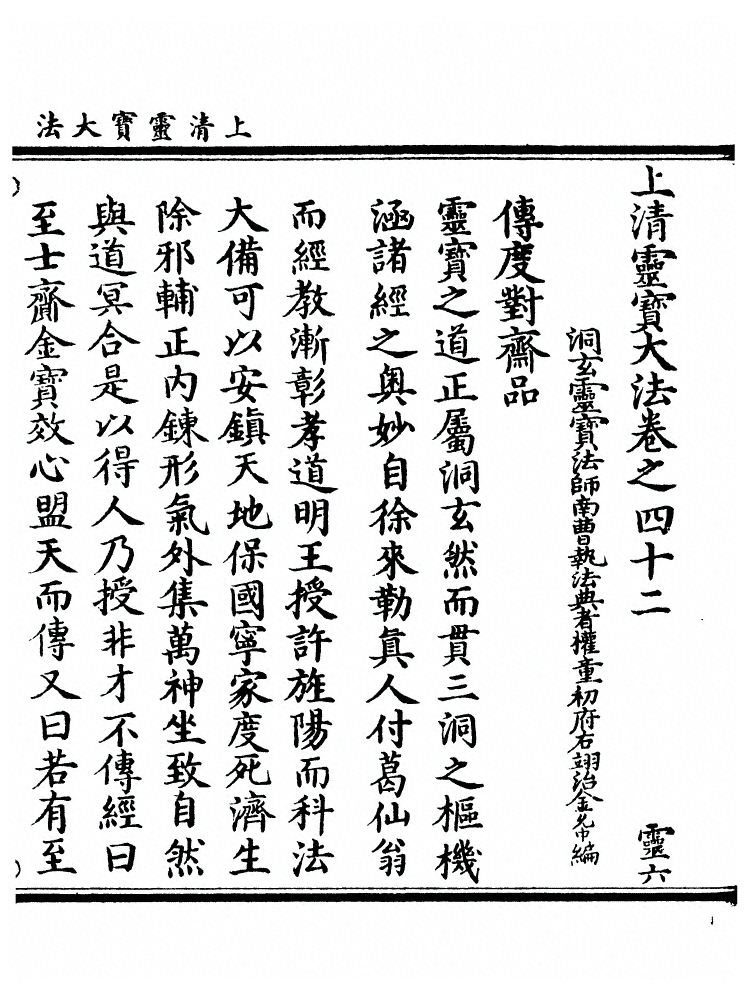 上清靈寶大法
上清靈寶大法卷之四十二 靈六
洞玄靈寶法師南曹執法典者權童初府右翊治金允中編
傳度對齋品
靈寶之道正屬洞玄然而貫三洞之樞機
涵諸經之奥妙自徐來勒真人付葛仙翁
而經教漸彰孝道明王授許旌陽而科法
大備可以安鎮天地保國寧家度死濟生
除邪輔正内鍊形氣外集萬神坐致自然
與道冥合是以得人乃授非才不傳經曰
至士齋金寶效心盟天而傳又曰若有至